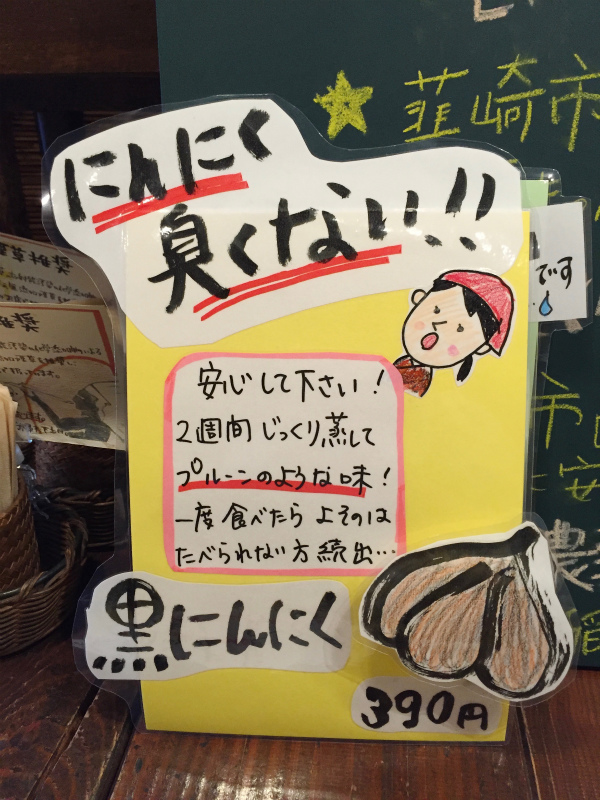 にんにく
臭くない!!
安心して下さい!
2週間じっくり蒸して
プルーンのような味!
一度食べたらよそのは
たべられない方続出…
黒にんにく
390円
韮崎市
です